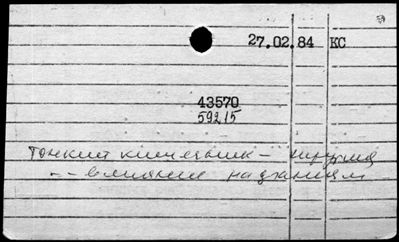 27.02.84 КС
43570
59215
Тонкий кишечник –
–"– влияние на